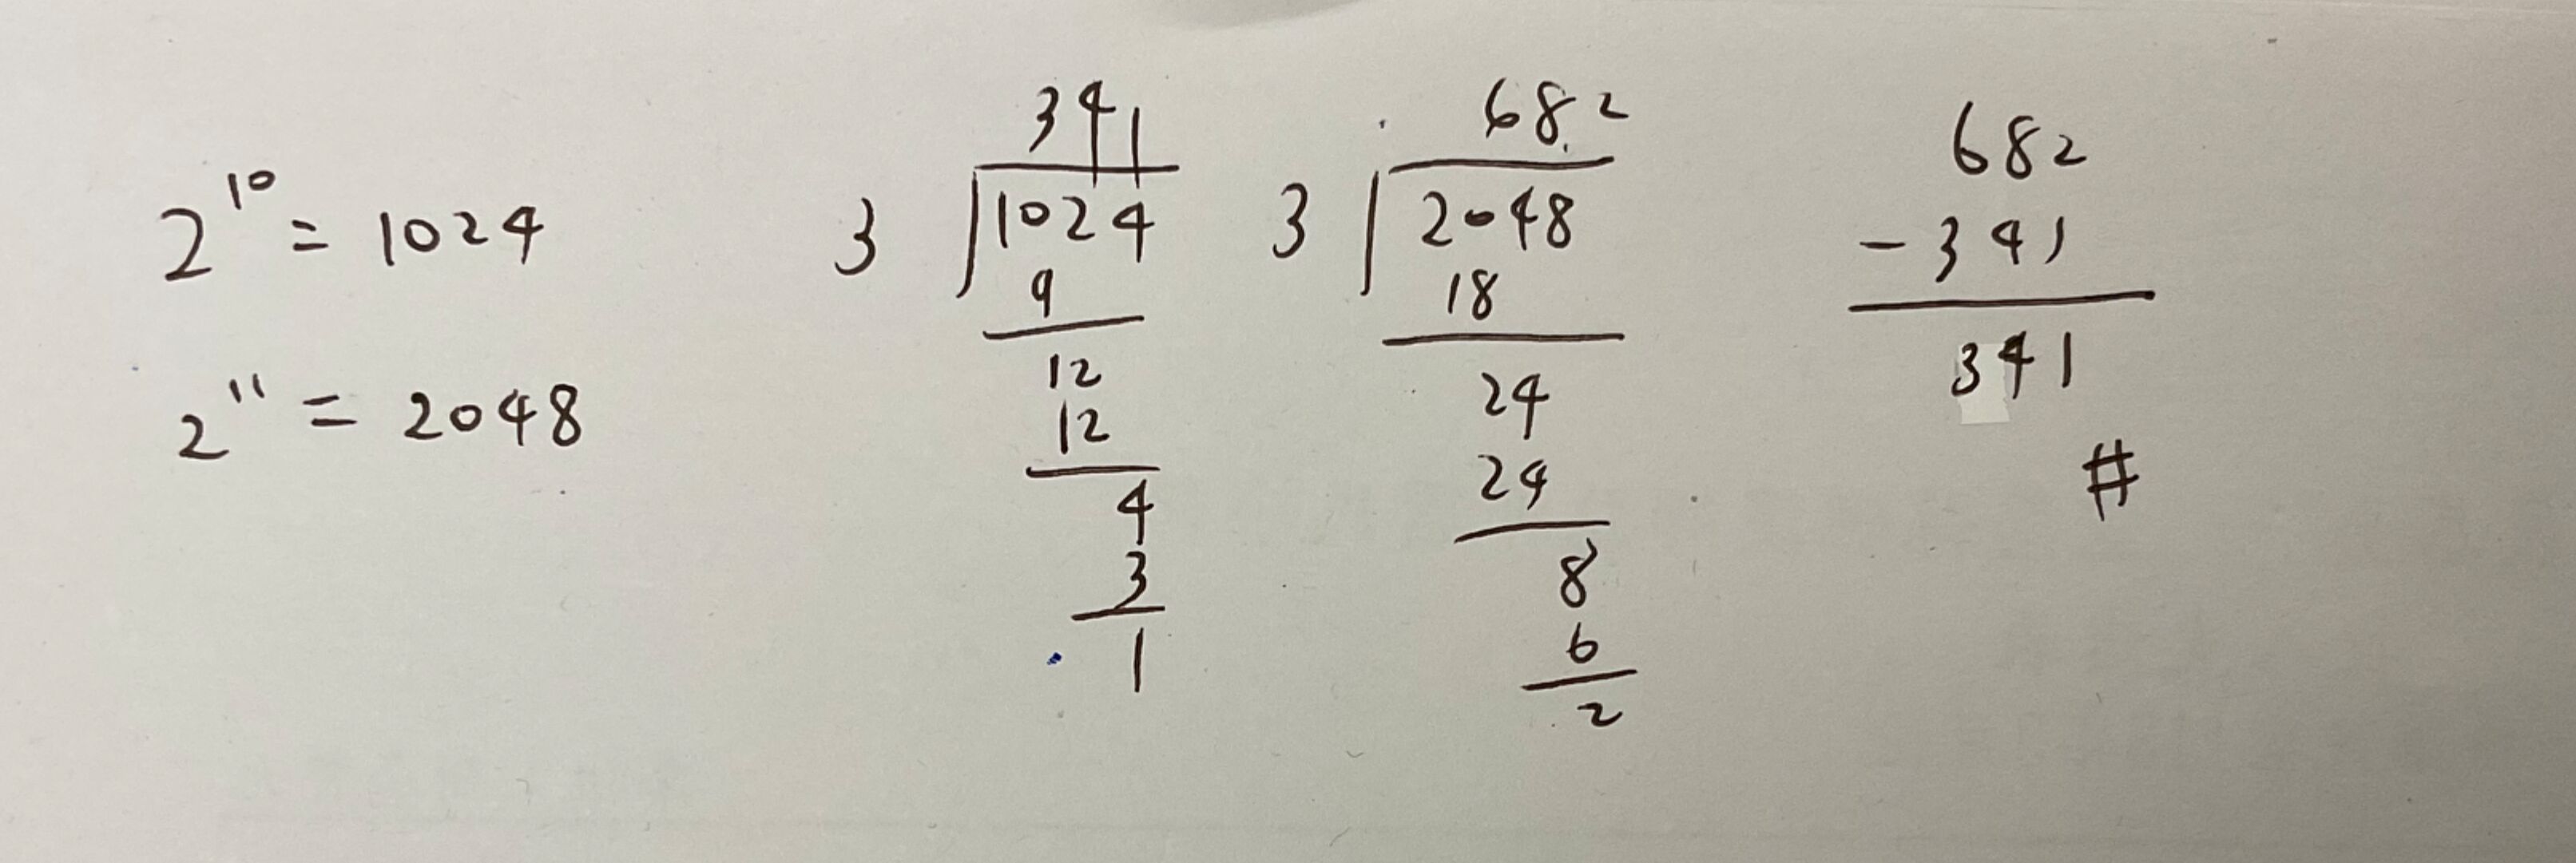 2^10 = 1024
2^11 = 2048
341
3 1024
9
12
12
4
3
1
682
3 2048
18
24
24
8
6
2
682
- 341
341
#